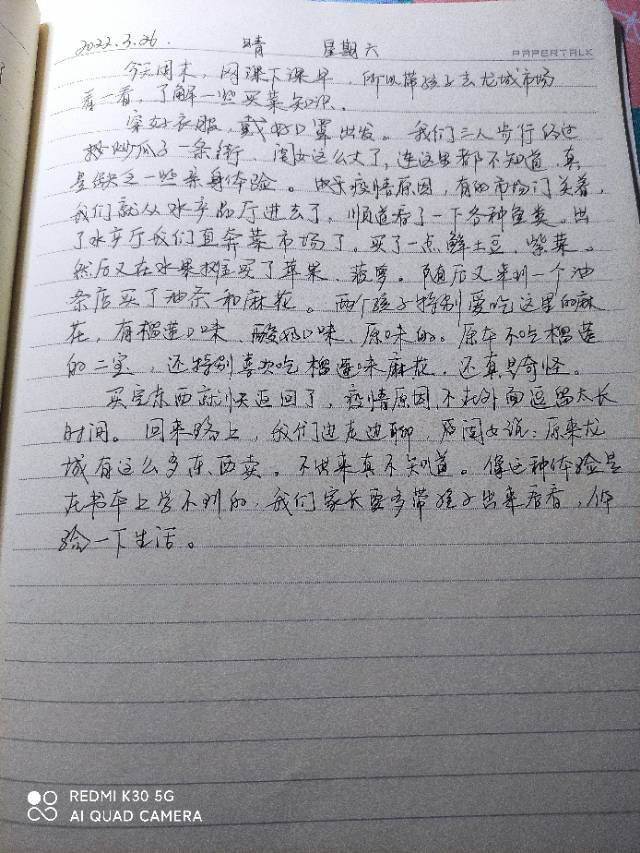 2022.3.26. 晴 星期六
PAPERTALK
今天周末，网课下课早，所以带孩子去龙城市场
看一看，了解一些买菜知识。
穿好衣服，戴好口罩出发。我们三人步行经过
炒瓜子一条街，闺女这么大了，连这里都不知道，真
是缺乏一些亲身体验。由于疫情原因，有的市场门关着，
我们就从水产品厅进去了，顺道看了一下各种鱼类。出
了水产厅我们直奔菜市场了，买了一点鲜土豆，紫菜。
然后又在水果摊买了苹果，菠萝。随后又来到一个油
条店买了油条和麻花。两个孩子特别爱吃这里的麻
花，有榴莲口味，酸奶口味，原味的。原本不吃榴莲
的二宝，还特别喜欢吃榴莲味麻花，还真是奇怪。
买完东西就快返回了，疫情原因，不在外面逗留太长
时间。回来路上，我们边走边聊，闺女说：原来龙
城有这么多东西卖。不出来真不知道。像这种体验是
在书本上学不到的，我们家长要多带孩子出来看看，体
验一下生活。
REDMI K30 5G
AI QUAD CAMERA